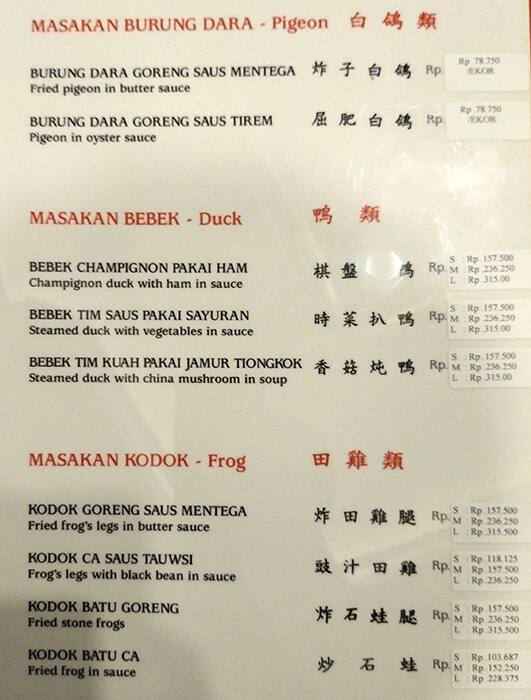 MASAKAN BURUNG DARA - Pigeon 白鴿類
BURUNG DARA GORENG SAUS MENTEGA 炸子白鴿 Rp. Rp .78.750
Fried pigeon in butter sauce /EKOR
BURUNG DARA GORENG SAUS TIREM 屈肥白鴿 Rp. Rp .78.750
Pigeon in oyster sauce /EKOR
MASAKAN BEBEK - Duck 鴨類
BEBEK CHAMPIGNON PAKAI HAM 棋盤 鴨 Rp. S : Rp .157.500
Champignon duck with ham in sauce M : Rp .236.250
L : Rp .315.00
BEBEK TIM SAUS PAKAI SAYURAN 時菜扒鴨 Rp. S : Rp .157.500
Steamed duck with vegetables in sauce M : Rp .236.250
L : Rp .315.00
BEBEK TIM KUAH PAKAI JAMUR TIONGKOK 香菇炖鴨 Rp. S : Rp .157.500
Steamed duck with china mushroom in soup M : Rp .236.250
L : Rp .315.00
MASAKAN KODOK - Frog 田雞類
KODOK GORENG SAUS MENTEGA 炸田雞腿 Rp. S : Rp .157.500
Fried frog's legs in butter sauce M : Rp .236.250
L : Rp .315.500
KODOK CA SAUS TAUWSI 豉汁田雞 Rp. S : Rp .118.125
Frog's legs with black bean in sauce M : Rp .157.500
L : Rp .236.250
KODOK BATU GORENG 炸石蛙腿 Rp. S : Rp .157.500
Fried stone frogs M : Rp .236.250
L : Rp .315.500
KODOK BATU CA 炒石蛙 Rp. S : Rp .103.687
Fried frog in sauce M : Rp .152.250
L : Rp .228.375